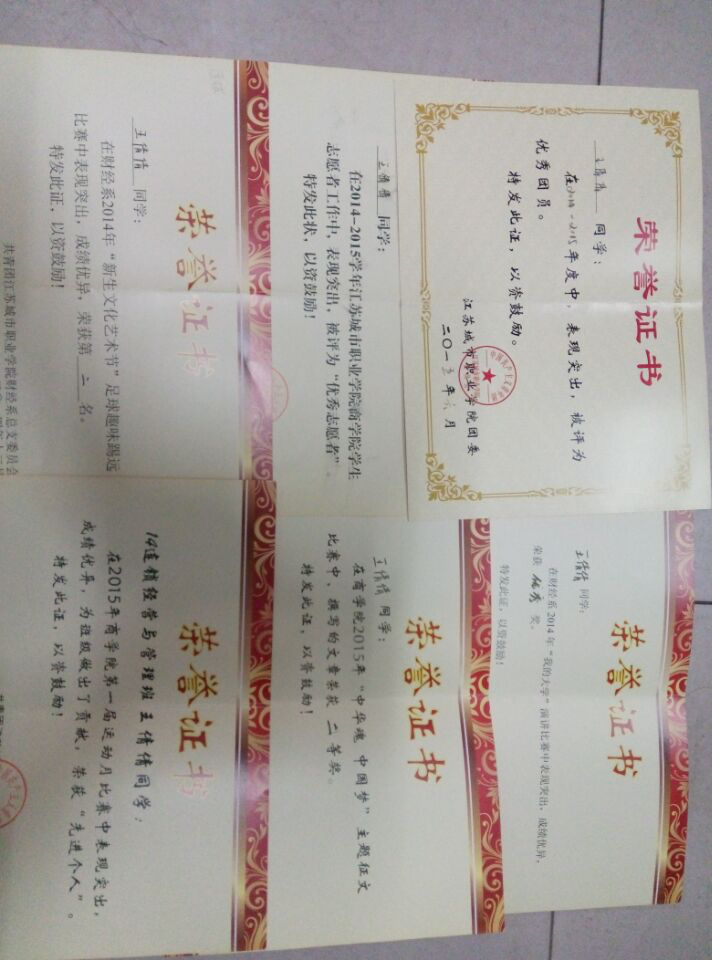 王倩倩 同学：
在财经系2014年“新生文化艺术节”足球趣味踢远
比赛中表现突出，成绩优异，荣获第 二 名。
特发此证，以资鼓励！
共青团江苏城市职业学院财经系总支委员会
荣誉证书
王倩倩 同学：
在2014-2015学年江苏城市职业学院商学院学生
志愿者工作中，表现突出，被评为“优秀志愿者”。
特发此状，以资鼓励！
荣誉证书
王倩倩 同学：
在2014-2015年度中，表现突出，被评为
优秀团员。
特发此证，以资鼓励。
江苏城市职业学院团委
二〇一五年六月
荣誉证书
14连锁经营与管理班王倩倩同学：
在2015年商学院第一届运动月比赛中表现突出，
成绩优异，为班级做出了贡献，荣获“先进个人”。
特发此证，以资鼓励！
荣誉证书
王倩倩 同学：
在商学院2015年“中华魂 中国梦”主题征文
比赛中，撰写的文章荣获 二等奖。
特发此证，以资鼓励！
荣誉证书
王倩倩 同学：
在财经系2014年“我的大学”演讲比赛中表现突出，成绩优异，
荣获 优秀 奖。
特发此证，以资鼓励！